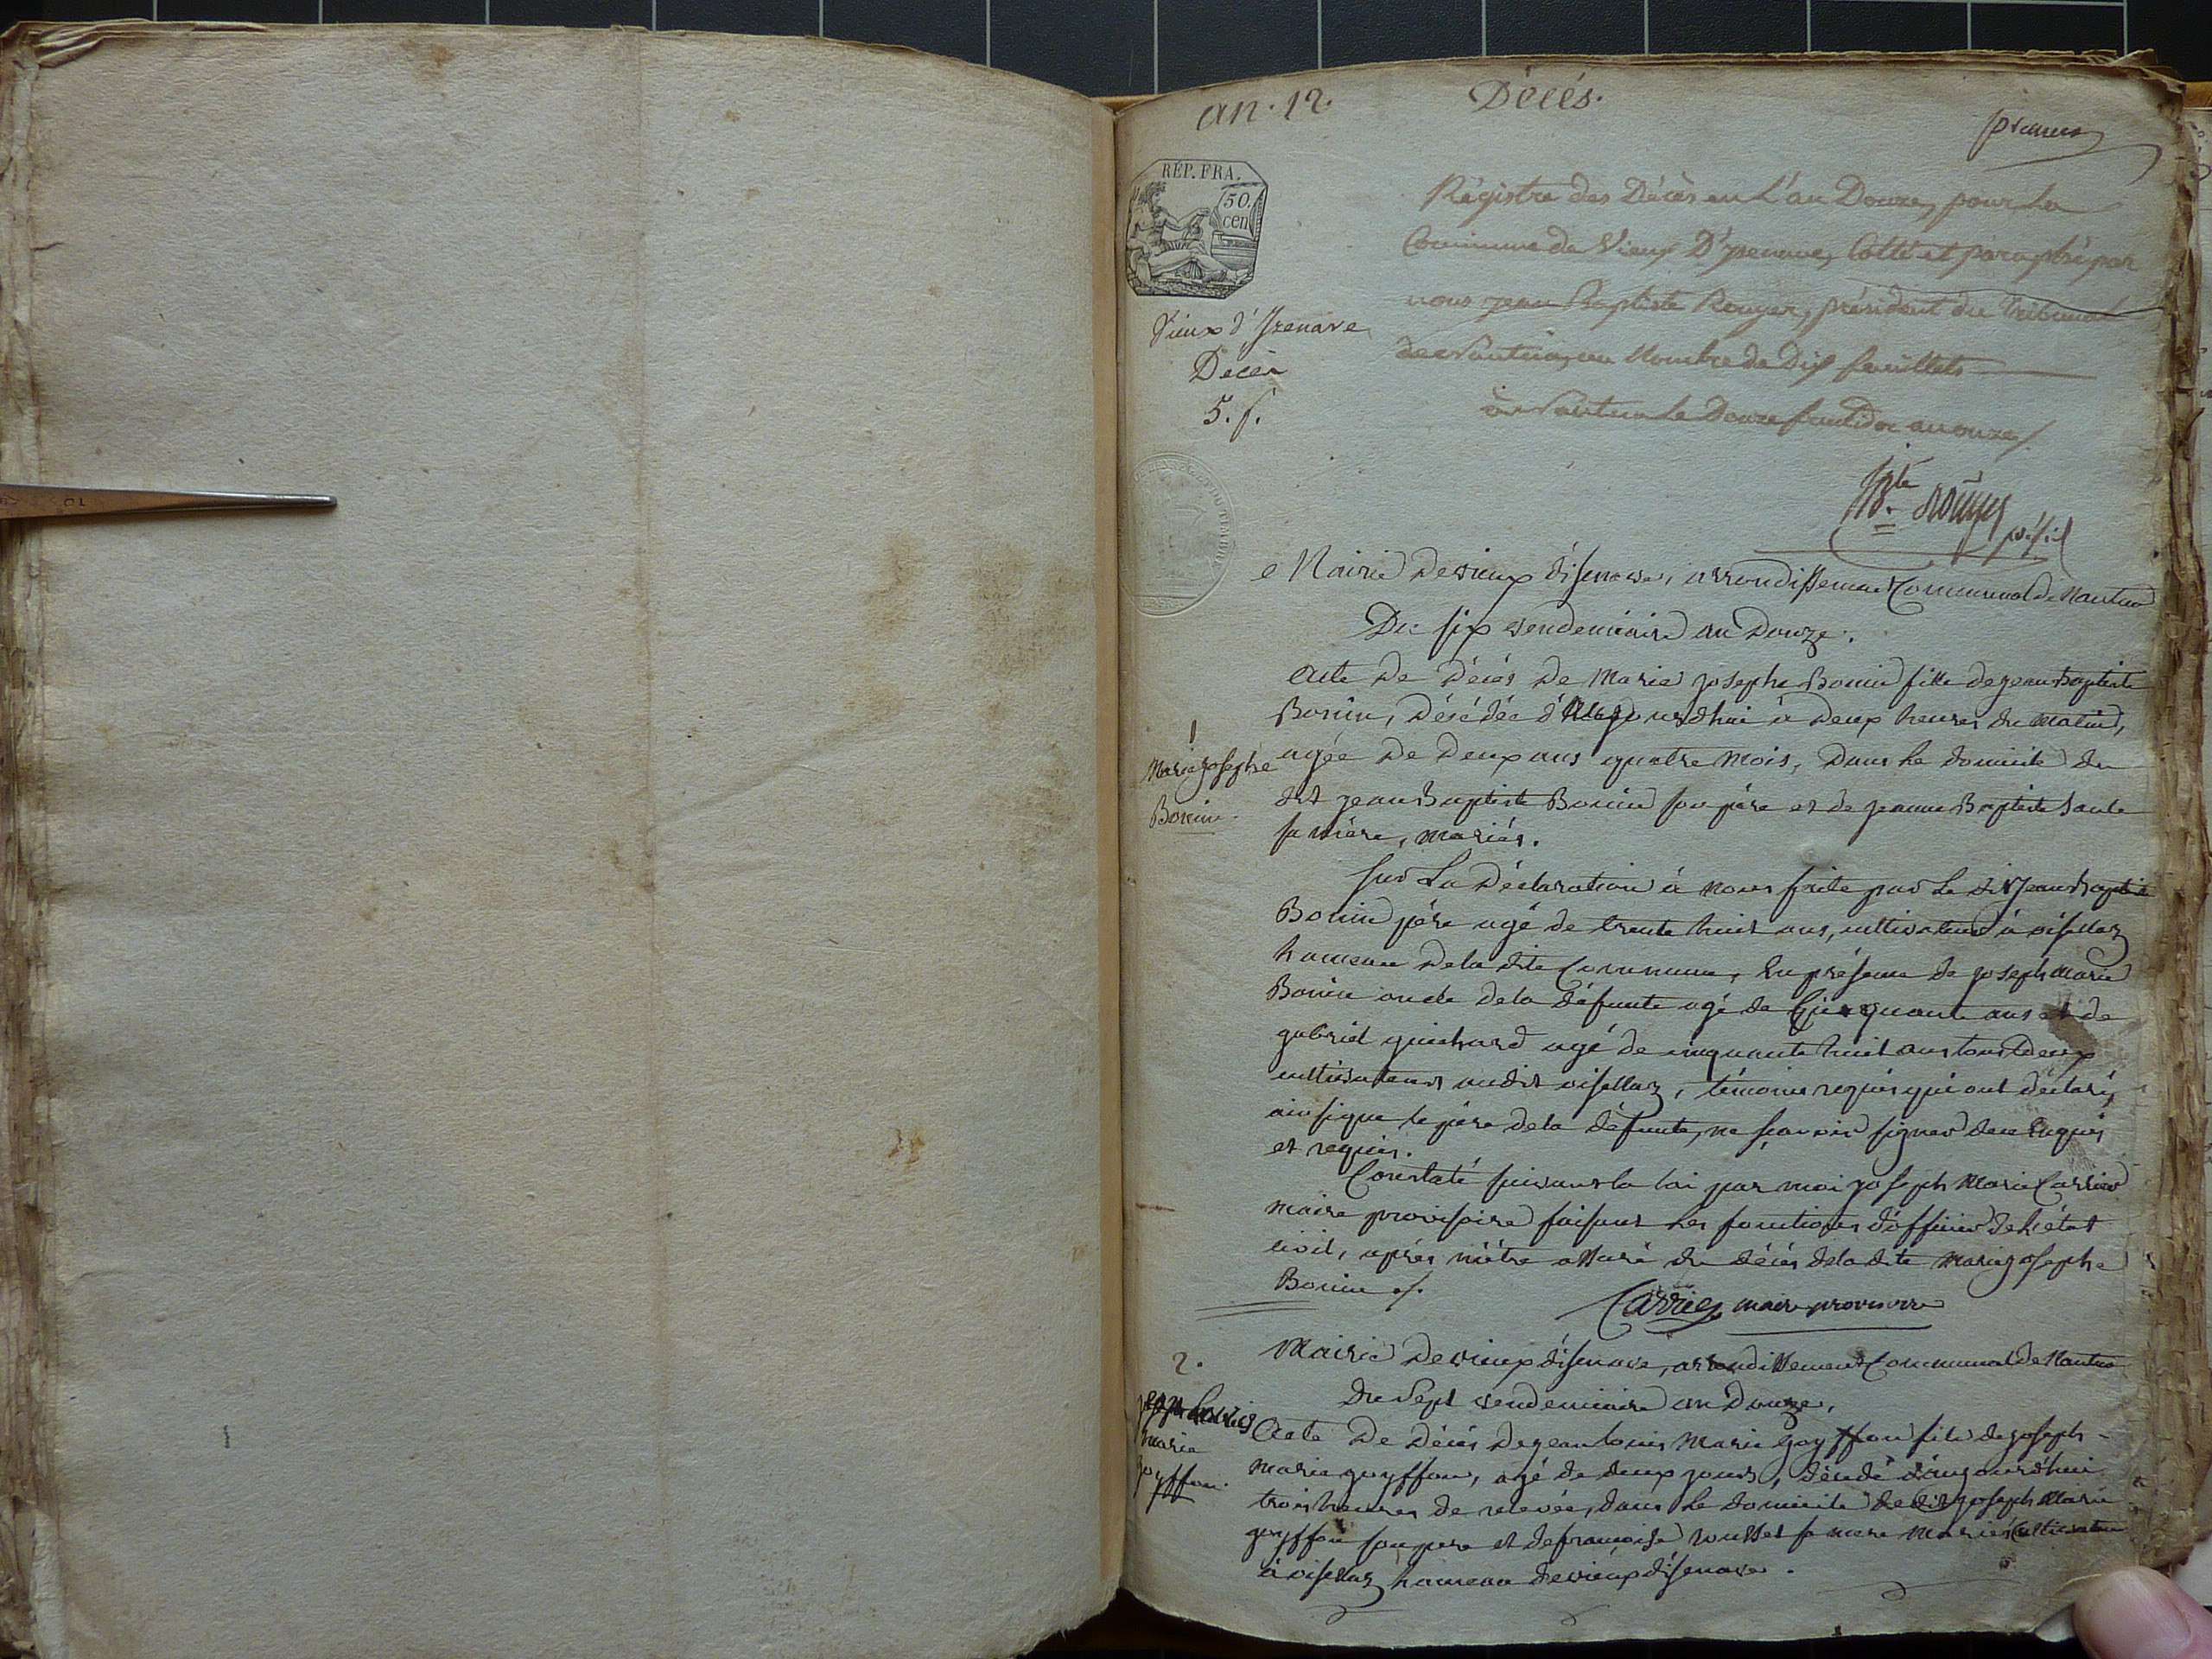 an. 12.
Décés.
premier
RÉP. FRA.
50.
cen
Régistre des Décès en L'an Douze, pour La
Commune de Vieux D'izenave, Cotté et paraphé par
nous jean Baptiste Rouyer, président du Tribunal
de Nantua, au Nombre de Dix feuillets
à Nantua Le Douze fructidor an onze /.
Vieux d'Izenave
Décès
5. f.
Mairie de vieux d'isenave, arrondissement Communal de Nantua
Du six vendemiaire an Douze.
1
Marie josephe
Bonin.
Acte de Décés de Marie josephe Bonin fille de jean Baptiste
Bonin, Décédée d'aujourdhui à Deux heures du matin,
agée de Deux ans quatre mois, Dans le domicile du
dit jean Baptiste Bonin son père et de jeanne Baptiste
sa mère, mariés.
sur La Déclaration à nous faite par le dit jean Baptiste
Bonin père agé de trente huit ans, cultivateur à oisellaz
hameau de la dite Commune, En présence de joseph marie
Bonin oncle de la défunte agé de Cinquante ans et de
gabriel guichard agé de cinquante huit ans tous Deux
cultivateurs audit oisellaz, témoins requis qui ont déclaré,
ainsi que le père de la défunte, ne sçavoir signer de ce Enquis
et requis.
Constaté suivant la loi par moi joseph marie Carrier
maire provisoire faisant les fonctions d'officier de l'état
civil, aprés m'être assuré du décés de la dite marie josephe
Bonin /.
Carrier maire provisoire
2.
Mairie de vieux d'isenave, arrondissement Communal de Nantua
du sept vendemiaire an Douze,
jean louis
marie
goyffon.
Acte De Décés de jean louis marie goyffon fils de joseph-
marie goyffon, agé de deux jours, décédé d'aujourd'hui
trois heures de relevée, dans le domicile de dit joseph marie
goyffon son pere et de francoise rousset sa mere mariés cultivateurs
à oisellaz hameau de vieux d'isenave.